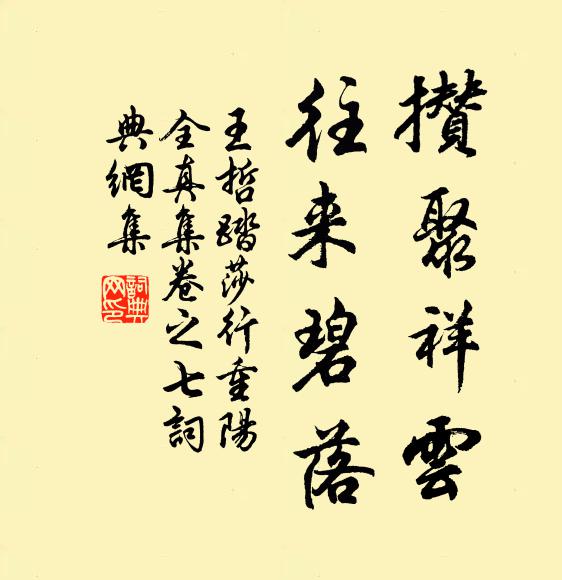 攅聚祥雲
往来碧落
王哲踏莎行重陽
全真集卷之七詞
典網集
詞典
网印